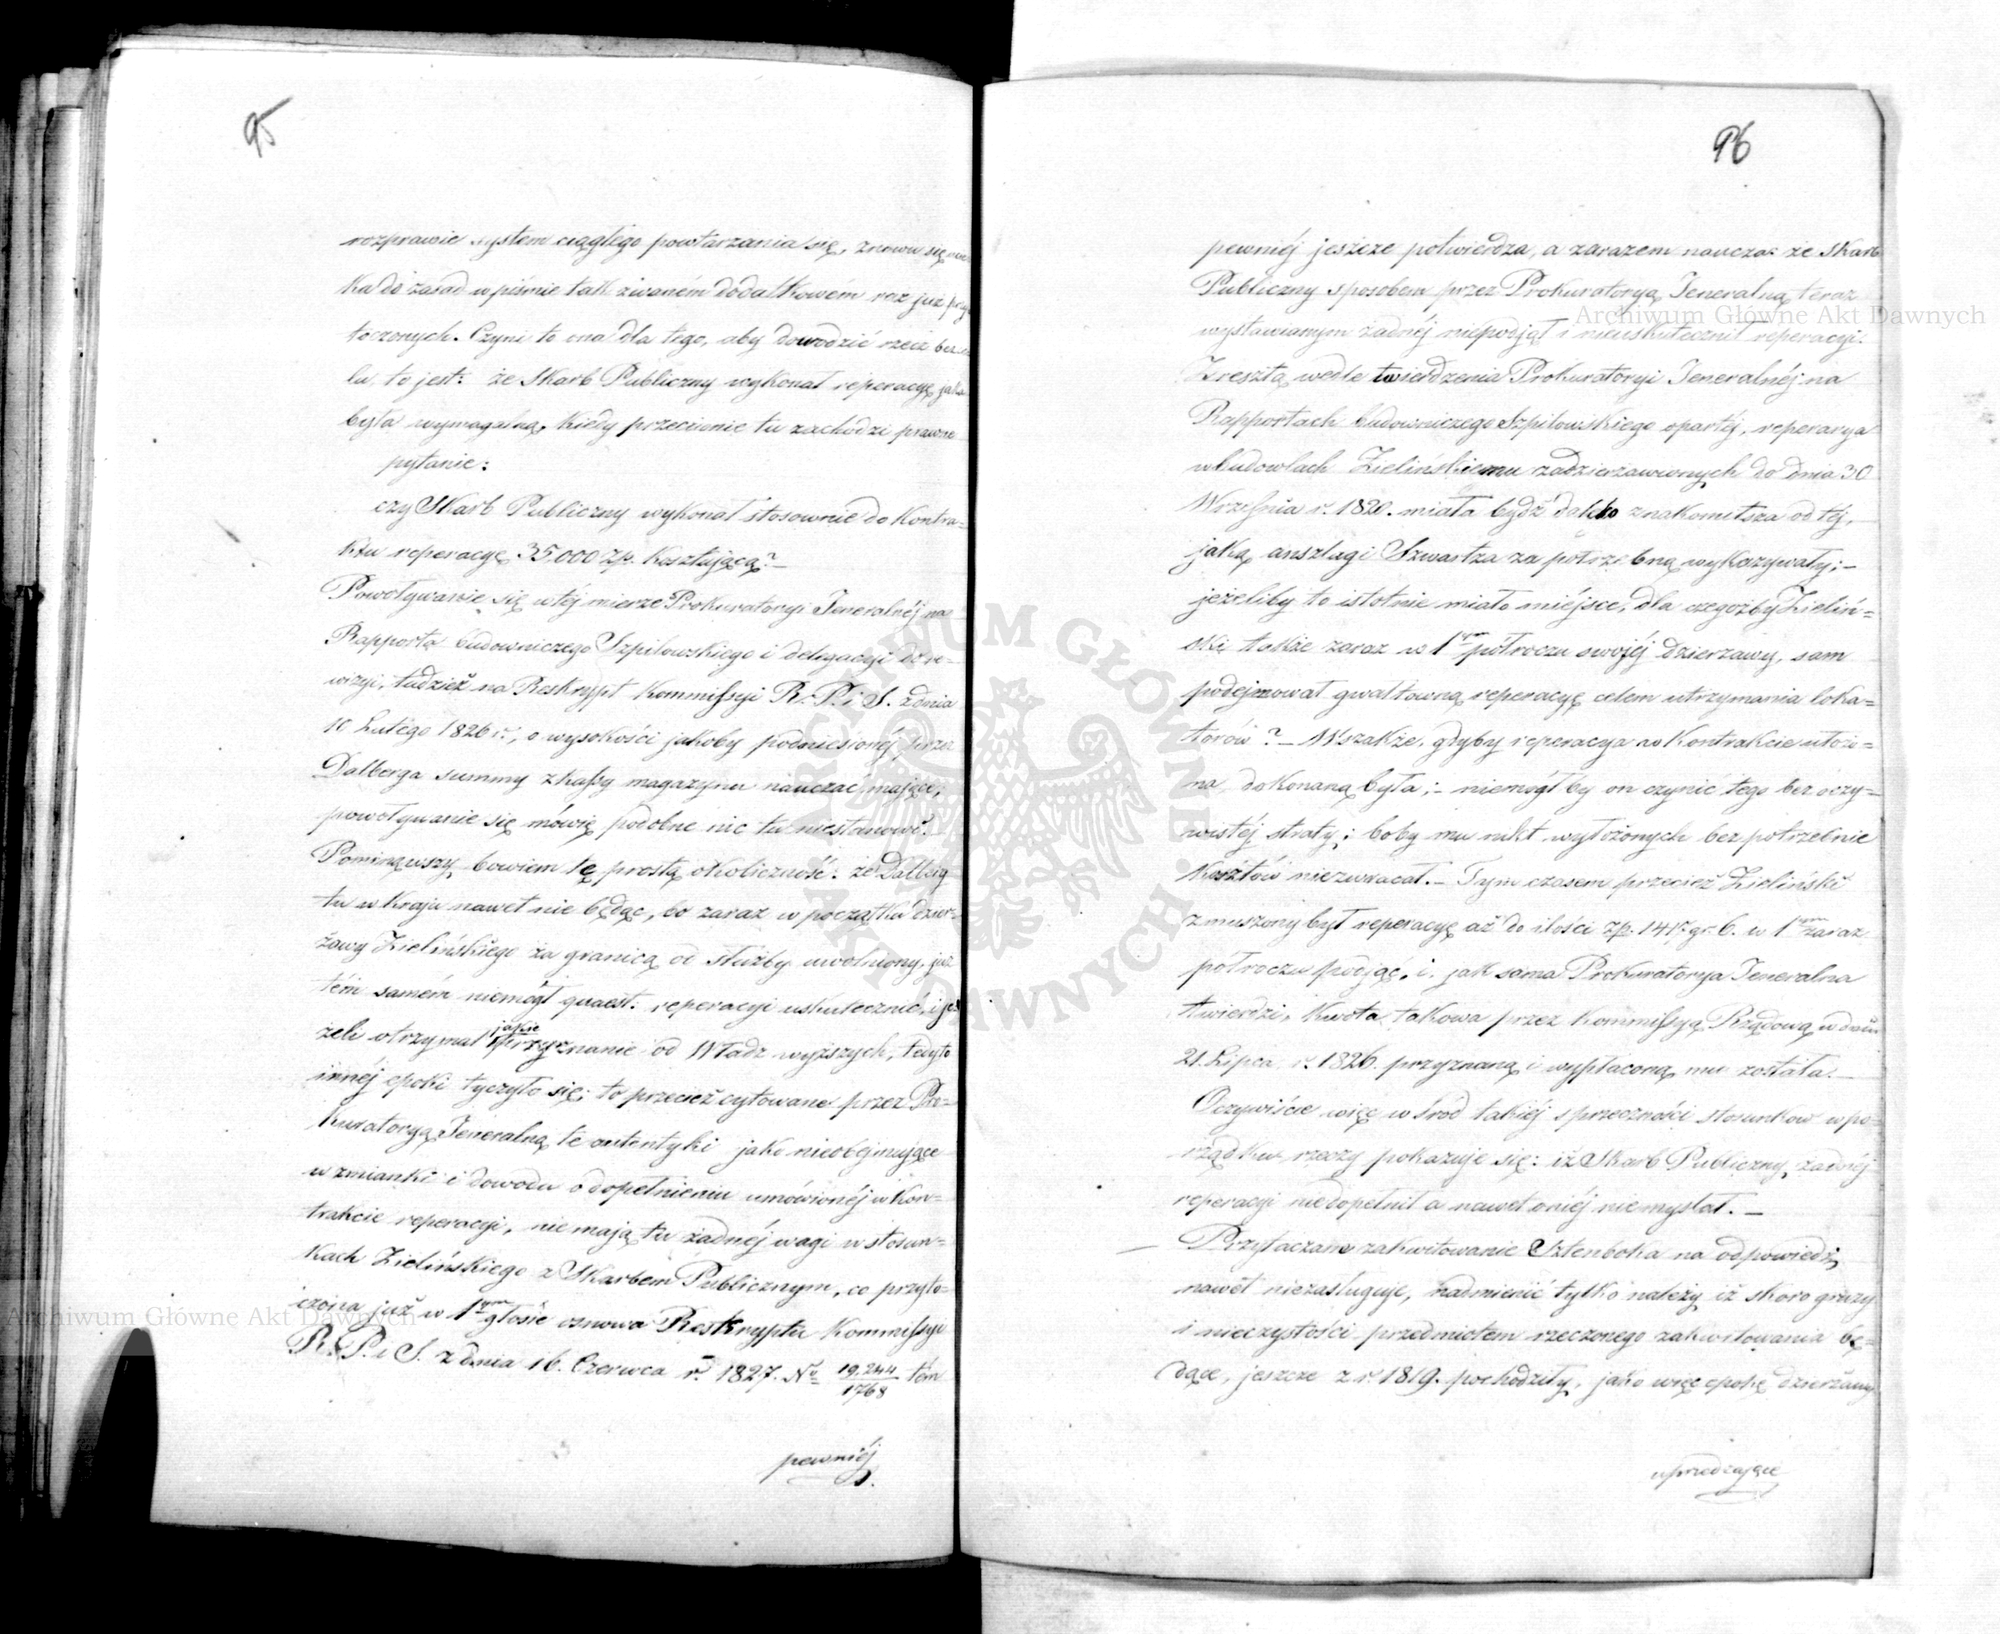 95
rozprawie system ciągłego powtarzania się, znowu się
ka do zasad w piśmie tak zwaném dodatkowém raz już przy
toczonych. Czyni to ona dla tego, aby dowodzić rzecz bez
lu, to jest: że Skarb Publiczny wykonał reperacyę jaka
była wymagalną, kiedy przeciwnie tu zachodzi prawne
pytanie:
czy Skarb Publiczny wykonał stosownie do Kontra=
ktu reperacyę 35,000 Zp. kosztującą?—
Powoływanie się w téj mierze Prokuratoryi Jeneralnéj na
Rapporta budowniczego Szpilowskiego i delegacyi do re=
wizyi, tudzież na Reskrypt Kommissyi R. P. i S. z dnia
10 Lutego 1826 r., o wysokości jakoby podniesionéj przez
Dalberga summy z kassy magazynu nauczać mające,
powoływanie się mówię podobne nic tu niestanowi.
Pominąwszy bowiem tę prostą okoliczność: że Dalberg
tu w kraju nawet nie będąc, bo zaraz w początku dzier=
żawy Zielińskiego za granicą od służby uwolniony, już
tém samém niemógł quaest: reperacyi uskutecznić, i je=
żeli otrzymał jakie przyznanie od Władz wyższych, tedy to
innéj epoki tyczyło się; to przecież cytowane przez Pro=
kuratoryą Jeneralną te autentyki jako nieobejmujące
wzmianki i dowodu o dopełnieniu umówionéj w Kon=
trakcie reperacyi, nie mają tu żadnéj wagi w stosun=
kach Zielińskiego z Skarbem Publicznym, co przyto=
czona już w 1ym głosie osnowa Reskryptu Kommissyi
R. P. i S. z dnia 16. Czerwca r. 1827. No 19,244/1768 tém
pewniéj
96
pewniéj jeszcze potwierdza, a zarazem naucza: że Skarb
Publiczny sposobem przez Prokuratoryą Jeneralną teraz
wystawianym żadnéj niepodjął i nieuskutecznił reperacyi.
Zresztą wedle twierdzenia Prokuratoryi Jeneralnéj na
Rapportach budowniczego Szpilowskiego opartéj, reperacya
w budowlach Zielińskiemu zadzierzawionych do dnia 30
Września r. 1820. miała bydź daleko znakomitsza od téj,
jaką anszlagi Szwartza za potrzebną wykazywały;—
jeżeliby to istotnie miało miéjsce, dla czegożby Zieliń=
ski także zaraz w 1ym półroczu swojéj dzierzawy, sam
podejmował gwałtowną reperacyę celem utrzymania loka=
torów?— Wszakże, gdyby reperacya w Kontrakcie ułożo=
na, dokonaną była;— niemógł by on czynić tego bez oczy=
wistéj straty; boby mu nikt wyłożonych bez potrzebnie
kosztów niezwracał.— Tym czasem przecież Zieliński
zmuszony był reperacyę aż do ilości Zp. 1417 gr. 6. w 1ym zaraz
półroczu podjąć, i jak sama Prokuratorya Jeneralna
twierdzi, kwota takowa przez Kommissyą Rządową w dniu
21. Lipca r. 1826. przyznaną i wypłaconą mu została.—
Oczywiście więc w śród takiéj sprzeczności stosunków w po=
rządku rzeczy pokazuje się: iż Skarb Publiczny żadnéj
reperacyi niedopełnił a nawet oniéj niemyślał.—
— Przytaczane zakwitowanie Sztenboka na odpowiedź
nawet niezasługuje, nadmienić tylko należy iż skoro gruzy
i nieczystości przedmiotem rzeczonego zakwitowania bę=
dące, jeszcze z r. 1819. pochodziły, jako więc epokę dzierżawy
uprzedzające